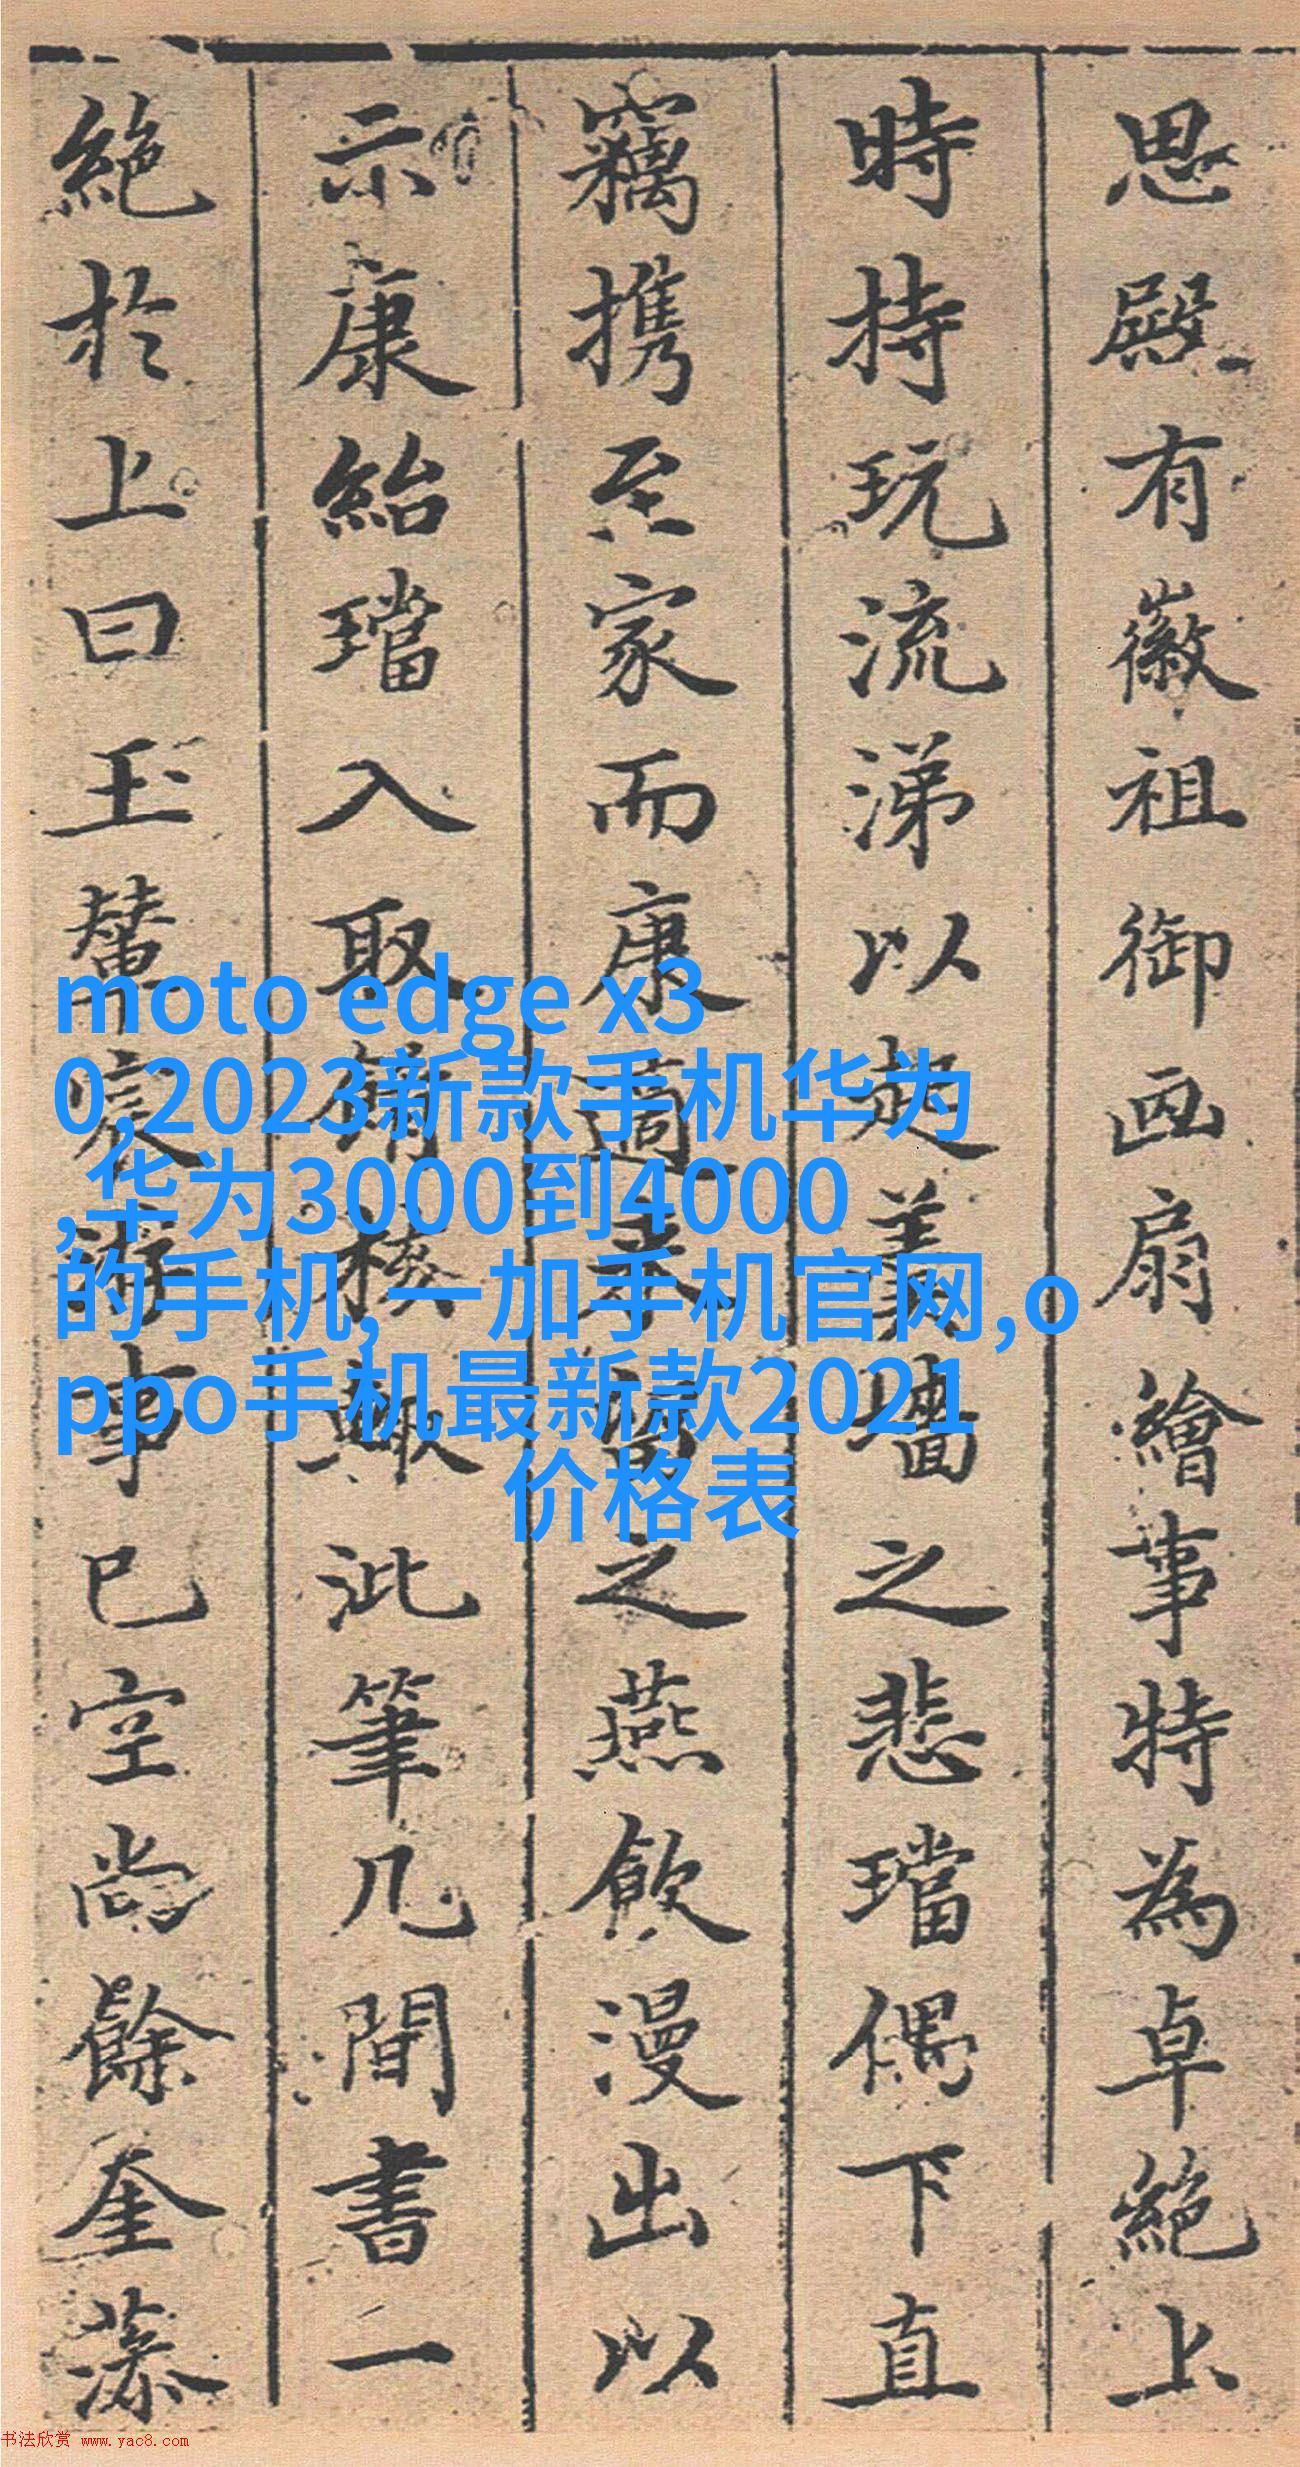 思殿有徽祖御画扇繪事特為卓絕上
時持玩流涕以起羹墙之悲璫偶下直
竊携至家而康適来留之燕飲漫出以
示康紿璫入取核輙泚筆几間書一
絶於上曰玉輦宸游事已空尚餘奎藻
moto edge x3
0,2023新款手机华为
,华为3000到4000
的手机,一加手机官网,o
ppo手机最新款2021
价格表
书法欣赏 www.yac8.com